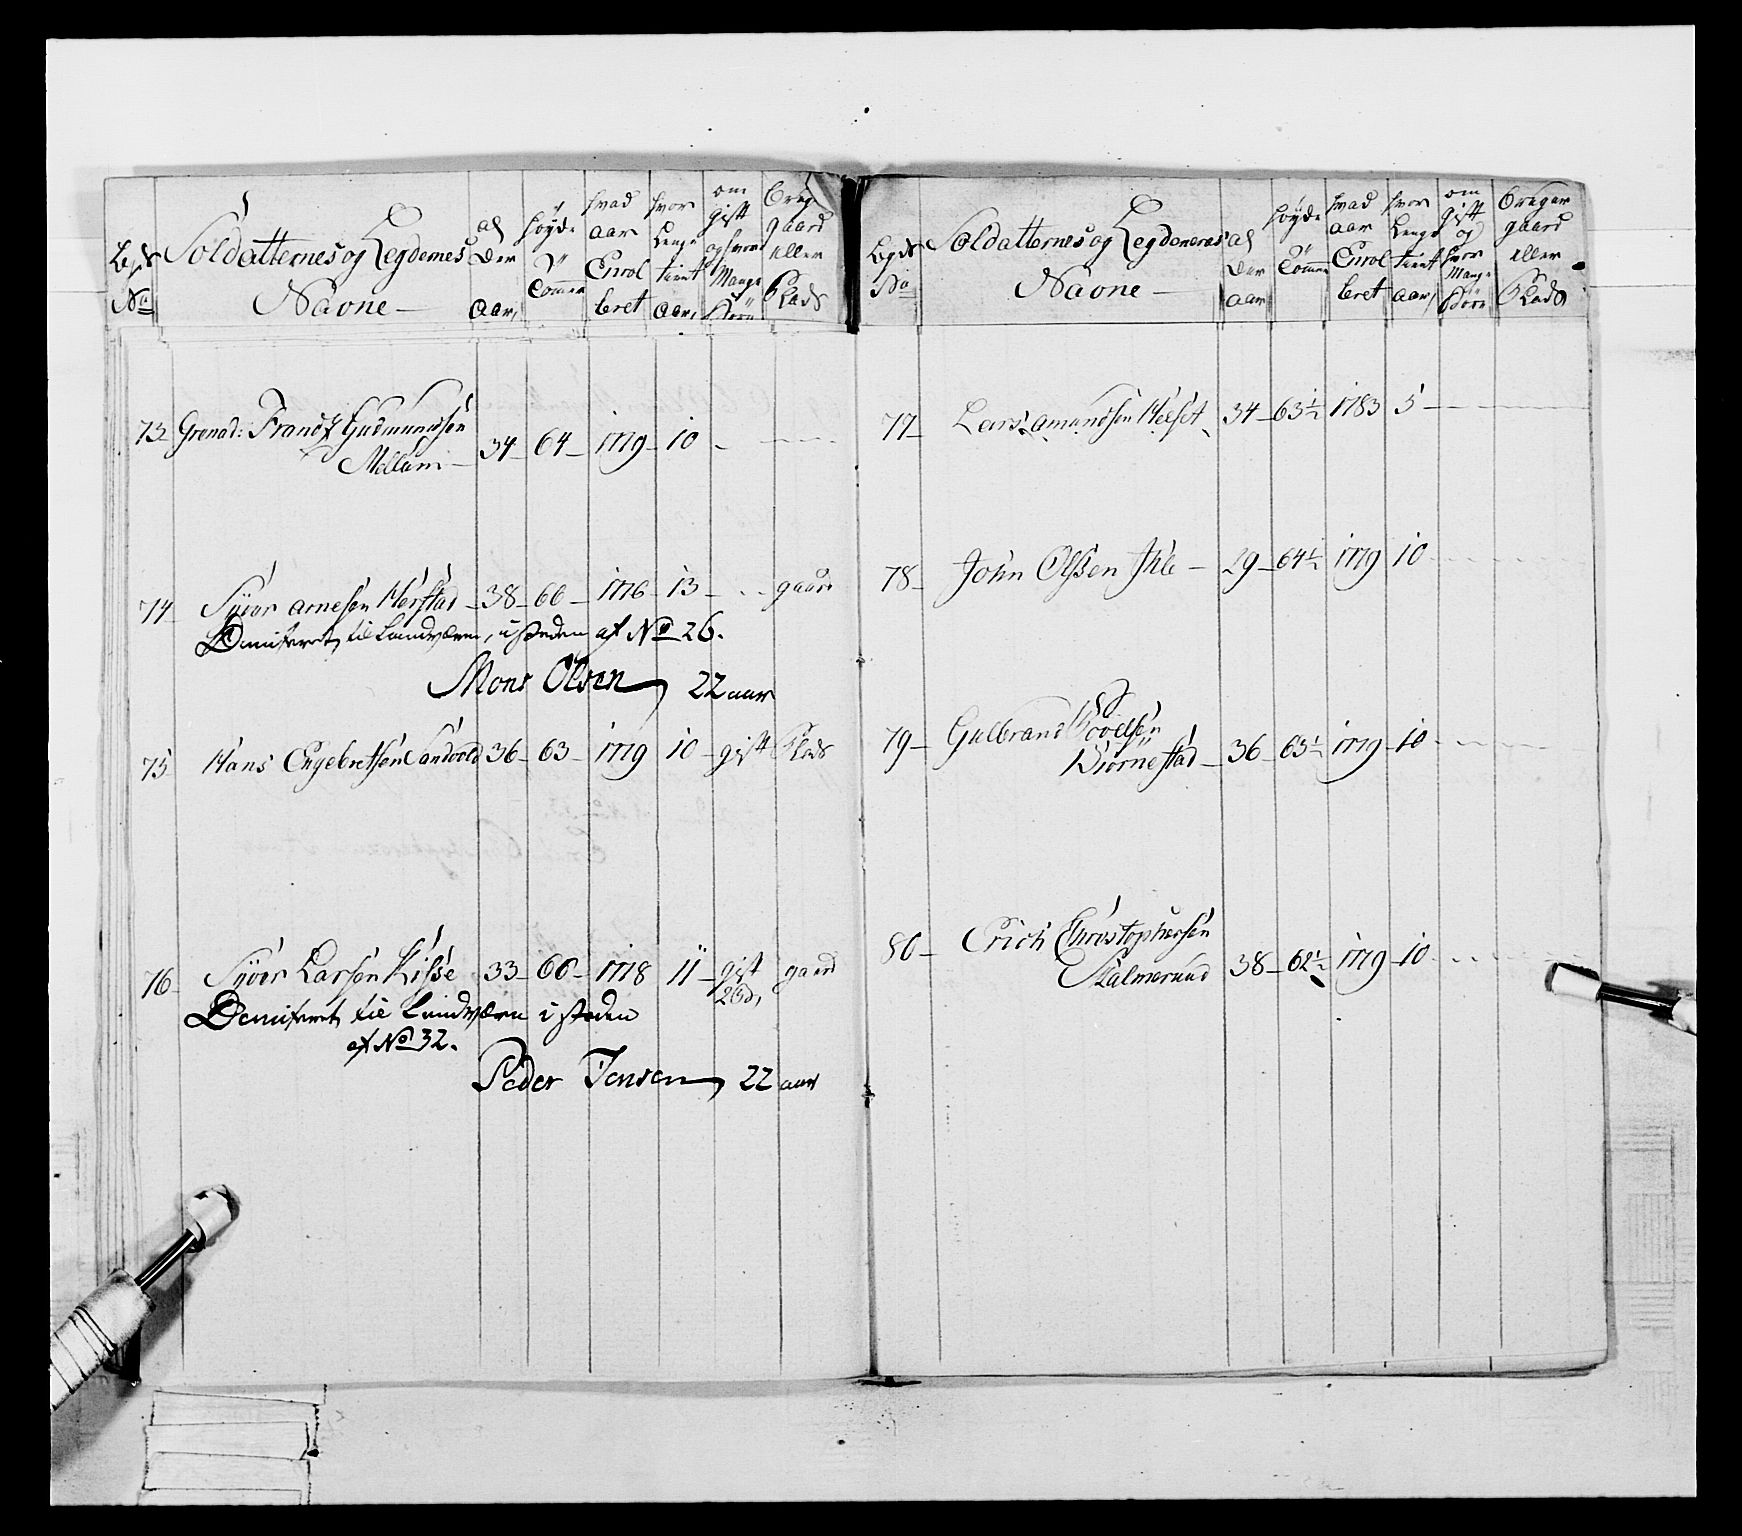 Legds No
Soldatternes og Legdernes Navne
al der aar,
høyde Tommer
hvad aar Enrol leret
hvor Lenge tient aar,
om gift og hvor Mange Børn
Brug gaard eller Plads
73 Grenad: Frandz Gudmundsen
Mellum 34 64 1779 10
74 Syver Arnesen Herstad 38 66 1776 13 gaard
Demiteret til Landværn, i steden af No 26.
Mons Olsen, 22 aar
75 Hans Engebretsen Sandvold 36 63 1779 10 gift Plads
76 Syver Larsen Risse 33 66 1778 11 gift 2 B, gaard
Demiteret til Landværn i steden
af No 32.
Peder Jensen, 22 aar
Legds No
Soldatternes og Legdernes Navne
al der aar
høyde Tomme
hvad aar Enrol leret
hvor Lenge tient aar,
om gift og hvor Mange Børn
Bruger gaard eller Plads
77 Lars Amundsen Helset 34 63½ 1783 5
78 John Olssen Ihle 29 64½ 1779 10
79 Gulbrand Povelsen
Biørnestad 36 63½ 1779 10
80 Erich Christophersen
Skalmerud 38 62½ 1779 10